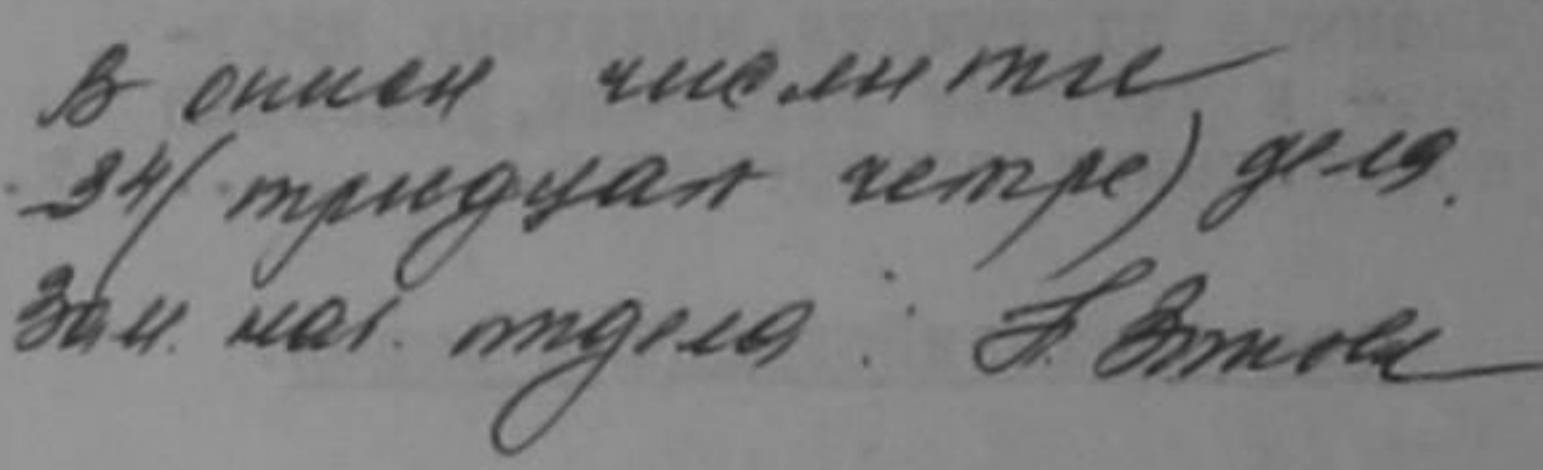 В описи числится
34 (тридцат четре) дела.
Зам. нач. отдела: